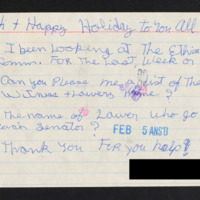 h + Happy Holiday to You All
I been Looking at The Ethics
Comm. For The Last, Week or
Can you Please me a List of The
Witness + Lawers Name?
The name of Lawer who go
each Senator?
FEB 5 ANS'D
Thank You For You help!